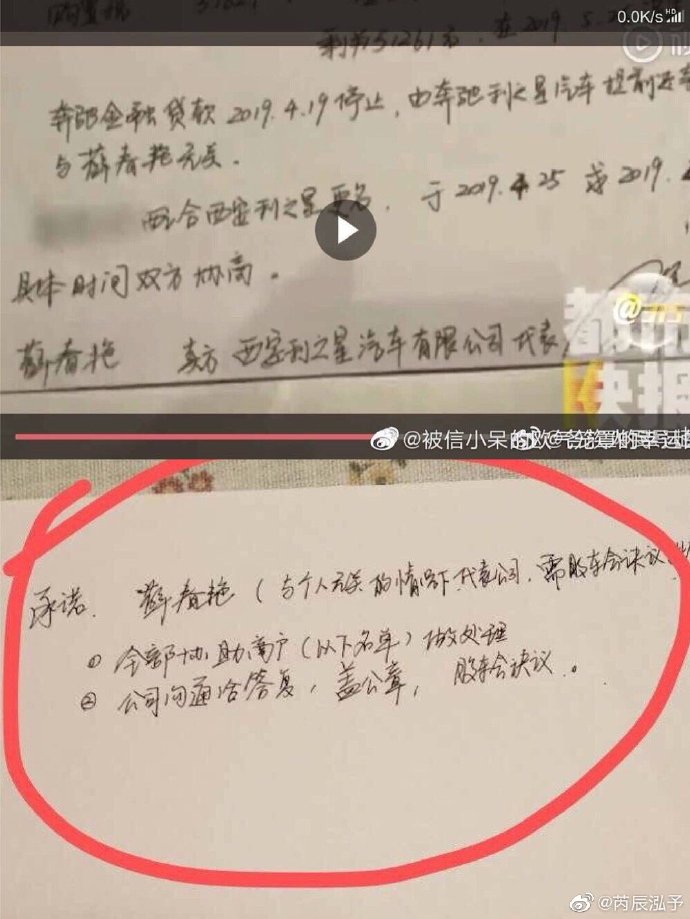 0.0K/s HD
剩余51261元,在2019.5.2
奔驰金融贷款2019.4.19停止,由奔驰利之星汽车提前还
与薛春艳无关.
配合西安利之星更名,于2019.4.25或2019.
具体时间双方协商。
薛春艳 卖方 西安利之星汽车有限公司代表
@
都市
快报
@被信小呆的欧
承诺. 薛春艳(与个人无关的情况下代表公司.需股东会决议
① 全部协助商户(以下名单)做处理
② 公司沟通给答复,盖公章,股东会决议。
@芮辰泓子